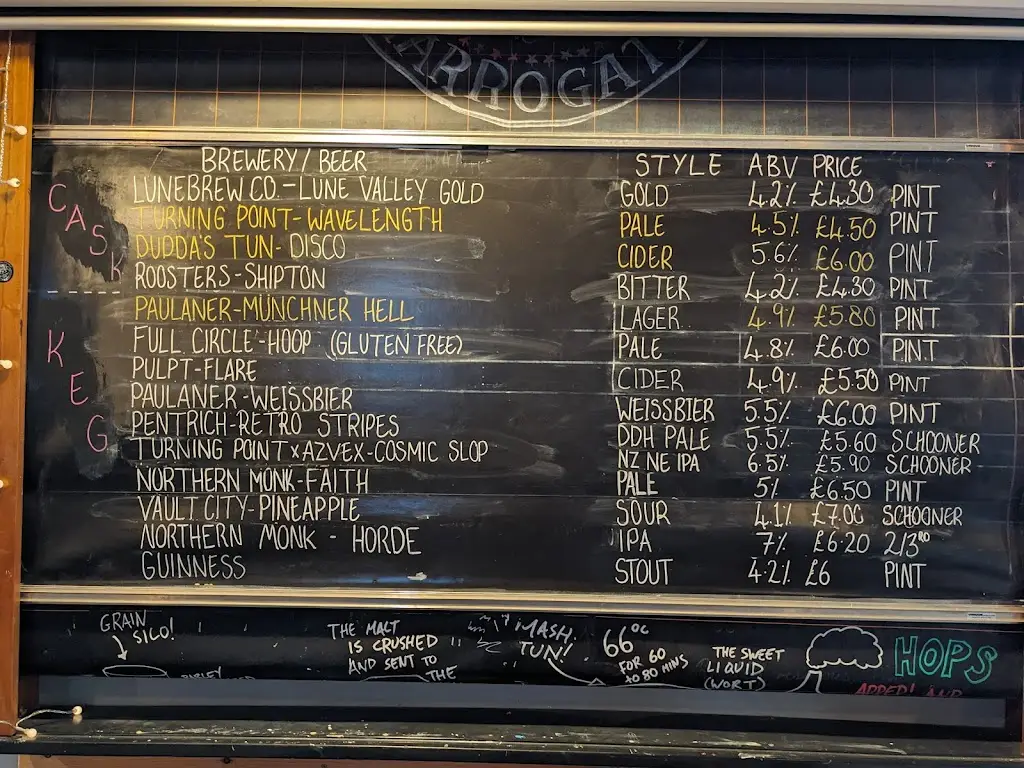 ARROGAT
BREWERY/BEER STYLE ABV PRICE
CASK
LUNEBREW CO.-LUNE VALLEY GOLD GOLD 4.2% £4.30 PINT
TURNING POINT-WAVELENGTH PALE 4.5% £4.50 PINT
DUDDA'S TUN-DISCO CIDER 5.6% £6.00 PINT
ROOSTERS-SHIPTON BITTER 4.2% £4.30 PINT
KEG
PAULANER-MÜNCHNER HELL LAGER 4.9% £5.80 PINT
FULL CIRCLE-HOOP (GLUTEN FREE) PALE 4.8% £6.00 PINT
PULPT-FLARE CIDER 4.9% £5.50 PINT
PAULANER-WEISSBIER WEISSBIER 5.5% £6.00 PINT
PENTRICH-RETRO STRIPES DDH PALE 5.5% £5.60 SCHOONER
TURNING POINT x AZVEX-COSMIC SLOP NZ NE IPA 6.5% £5.90 SCHOONER
NORTHERN MONK-FAITH PALE 5% £6.50 PINT
VAULT CITY-PINEAPPLE SOUR 4.1% £7.00 SCHOONER
NORTHERN MONK - HORDE IPA 7% £6.20 2/3RD
GUINNESS STOUT 4.2% £6 PINT
GRAIN
SILO!
THE MALT
IS CRUSHED
AND SENT TO
THE
MASH
TUN!
66°C
FOR 60
TO 80 MINS
THE SWEET
LIQUID
(WORT)
HOPS
ADDED! AND